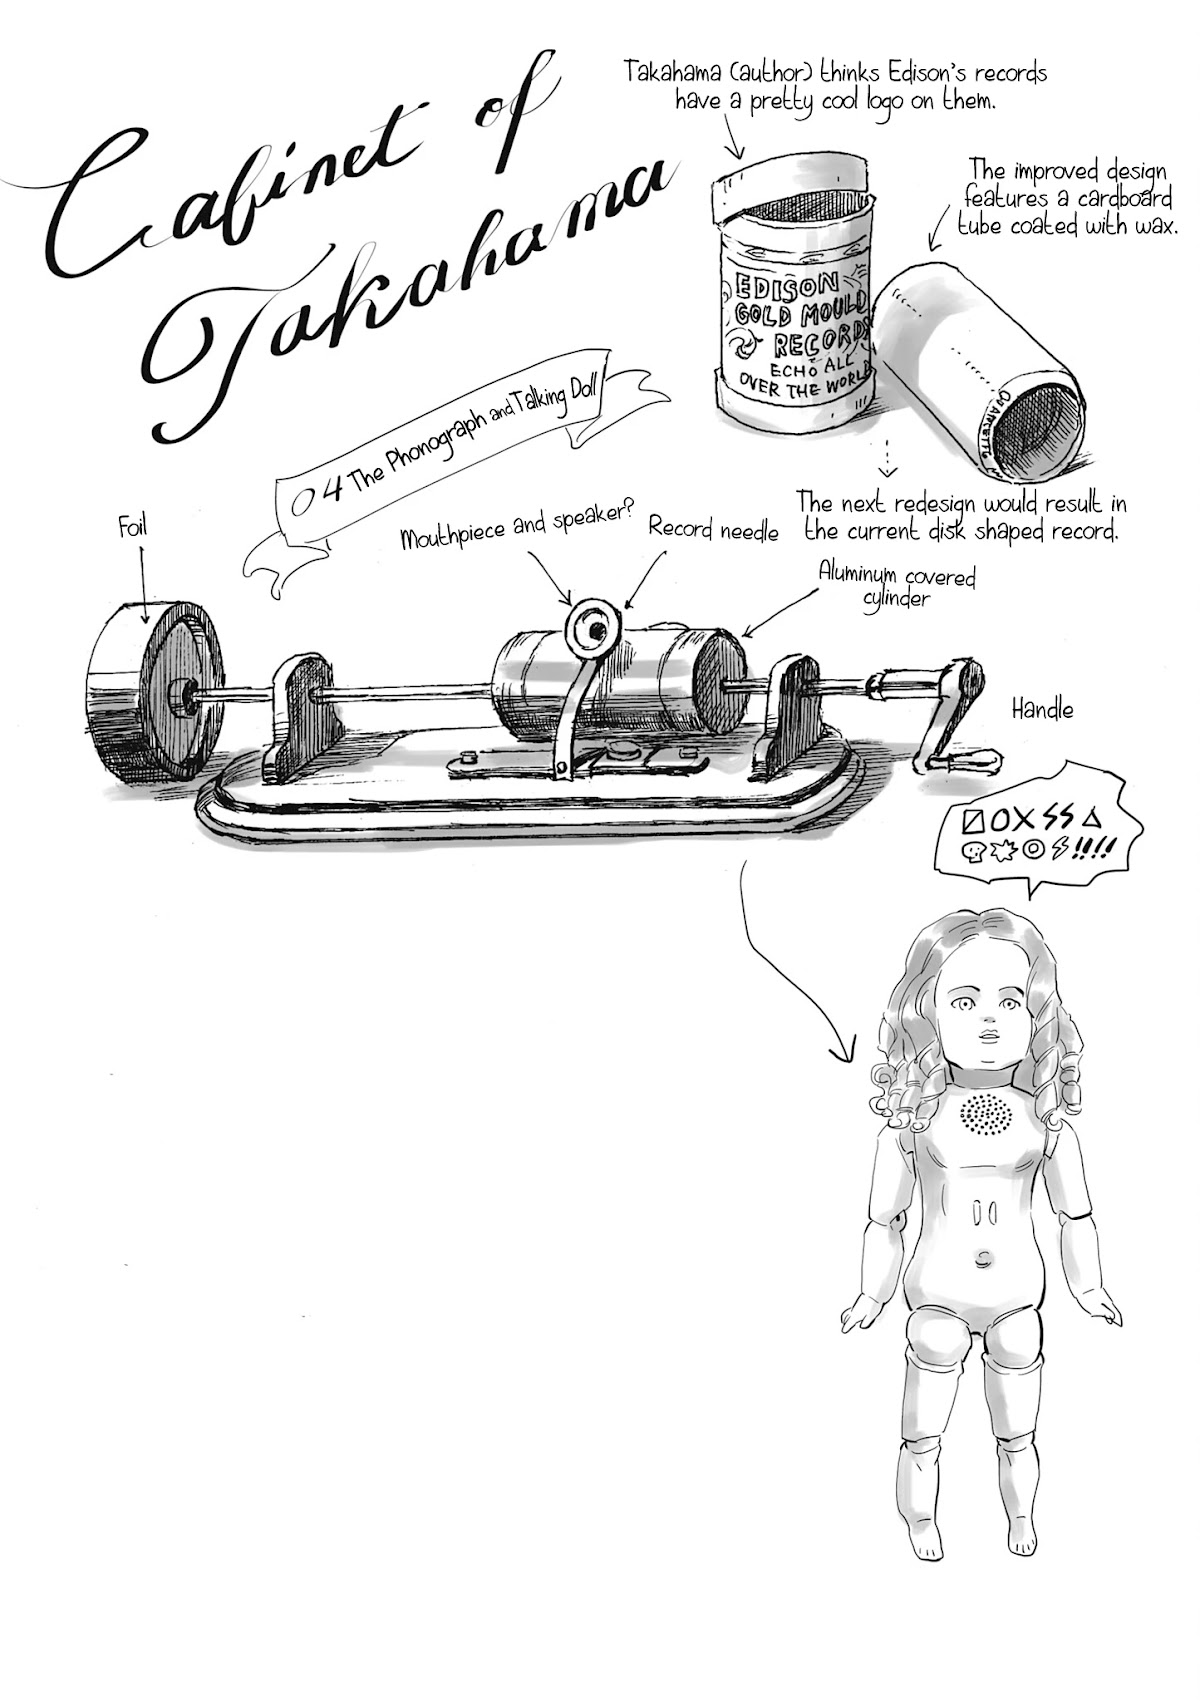 Cabinet of
Takahama
04 The Phonograph and Talking Doll
Takahama (author) thinks Edison's records
have a pretty cool logo on them.
The improved design
features a cardboard
tube coated with wax.
EDISON
GOLD MOULD
RECORDS
ECHO ALL
OVER THE WORLD
The next redesign would result in
the current disk shaped record.
Foil
Mouthpiece and speaker?
Record needle
Aluminum covered
cylinder
Handle